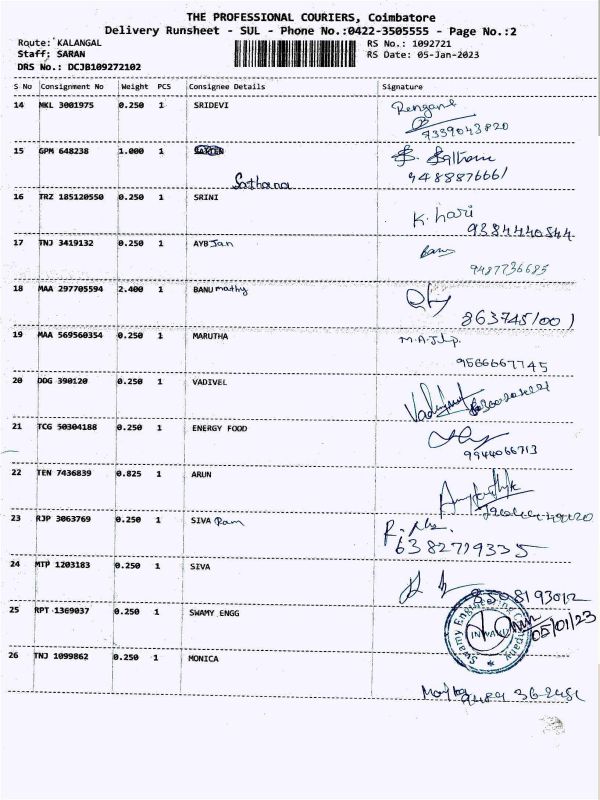 THE PROFESSIONAL COURIERS, Coimbatore
Delivery Runsheet - SUL - Phone No.:0422-3505555 - Page No.:2
Route: KALANGAL
RS No.: 1092721
Staff: SARAN
RS Date: 05-Jan-2023
DRS No.: DCJB109272102
S No Consignment No Weight PCS Consignee Details Signature
14 MKL 3001975 0.250 1 SRIDEVI
7339043820
15 GPM 648238 1.000 1
Sathana
9488876661
16 TRZ 185120550 0.250 1 SRINI K. hari
9384440544
17 TNJ 3419132 0.250 1 AYBJan Banu
9487736685
18 MAA 297705594 2.400 1 BANUmathy
8637451001
19 MAA 569560354 0.250 1 MARUTHA
9566667745
20 DDG 390120 0.250 1 VADIVEL
21 TCG 50304188 0.250 1 ENERGY FOOD
9944066713
22 TEN 7436839 0.825 1 ARUN
23 RJP 3063769 0.250 1 SIVA Ram
6382719335
24 MTP 1203183 0.250 1 SIVA
8508193012
25 RPT 1369037 0.250 1 SWAMY ENGG
Swamy Engineering Company
05/01/23
26 TNJ 1099862 0.250 1 MONICA